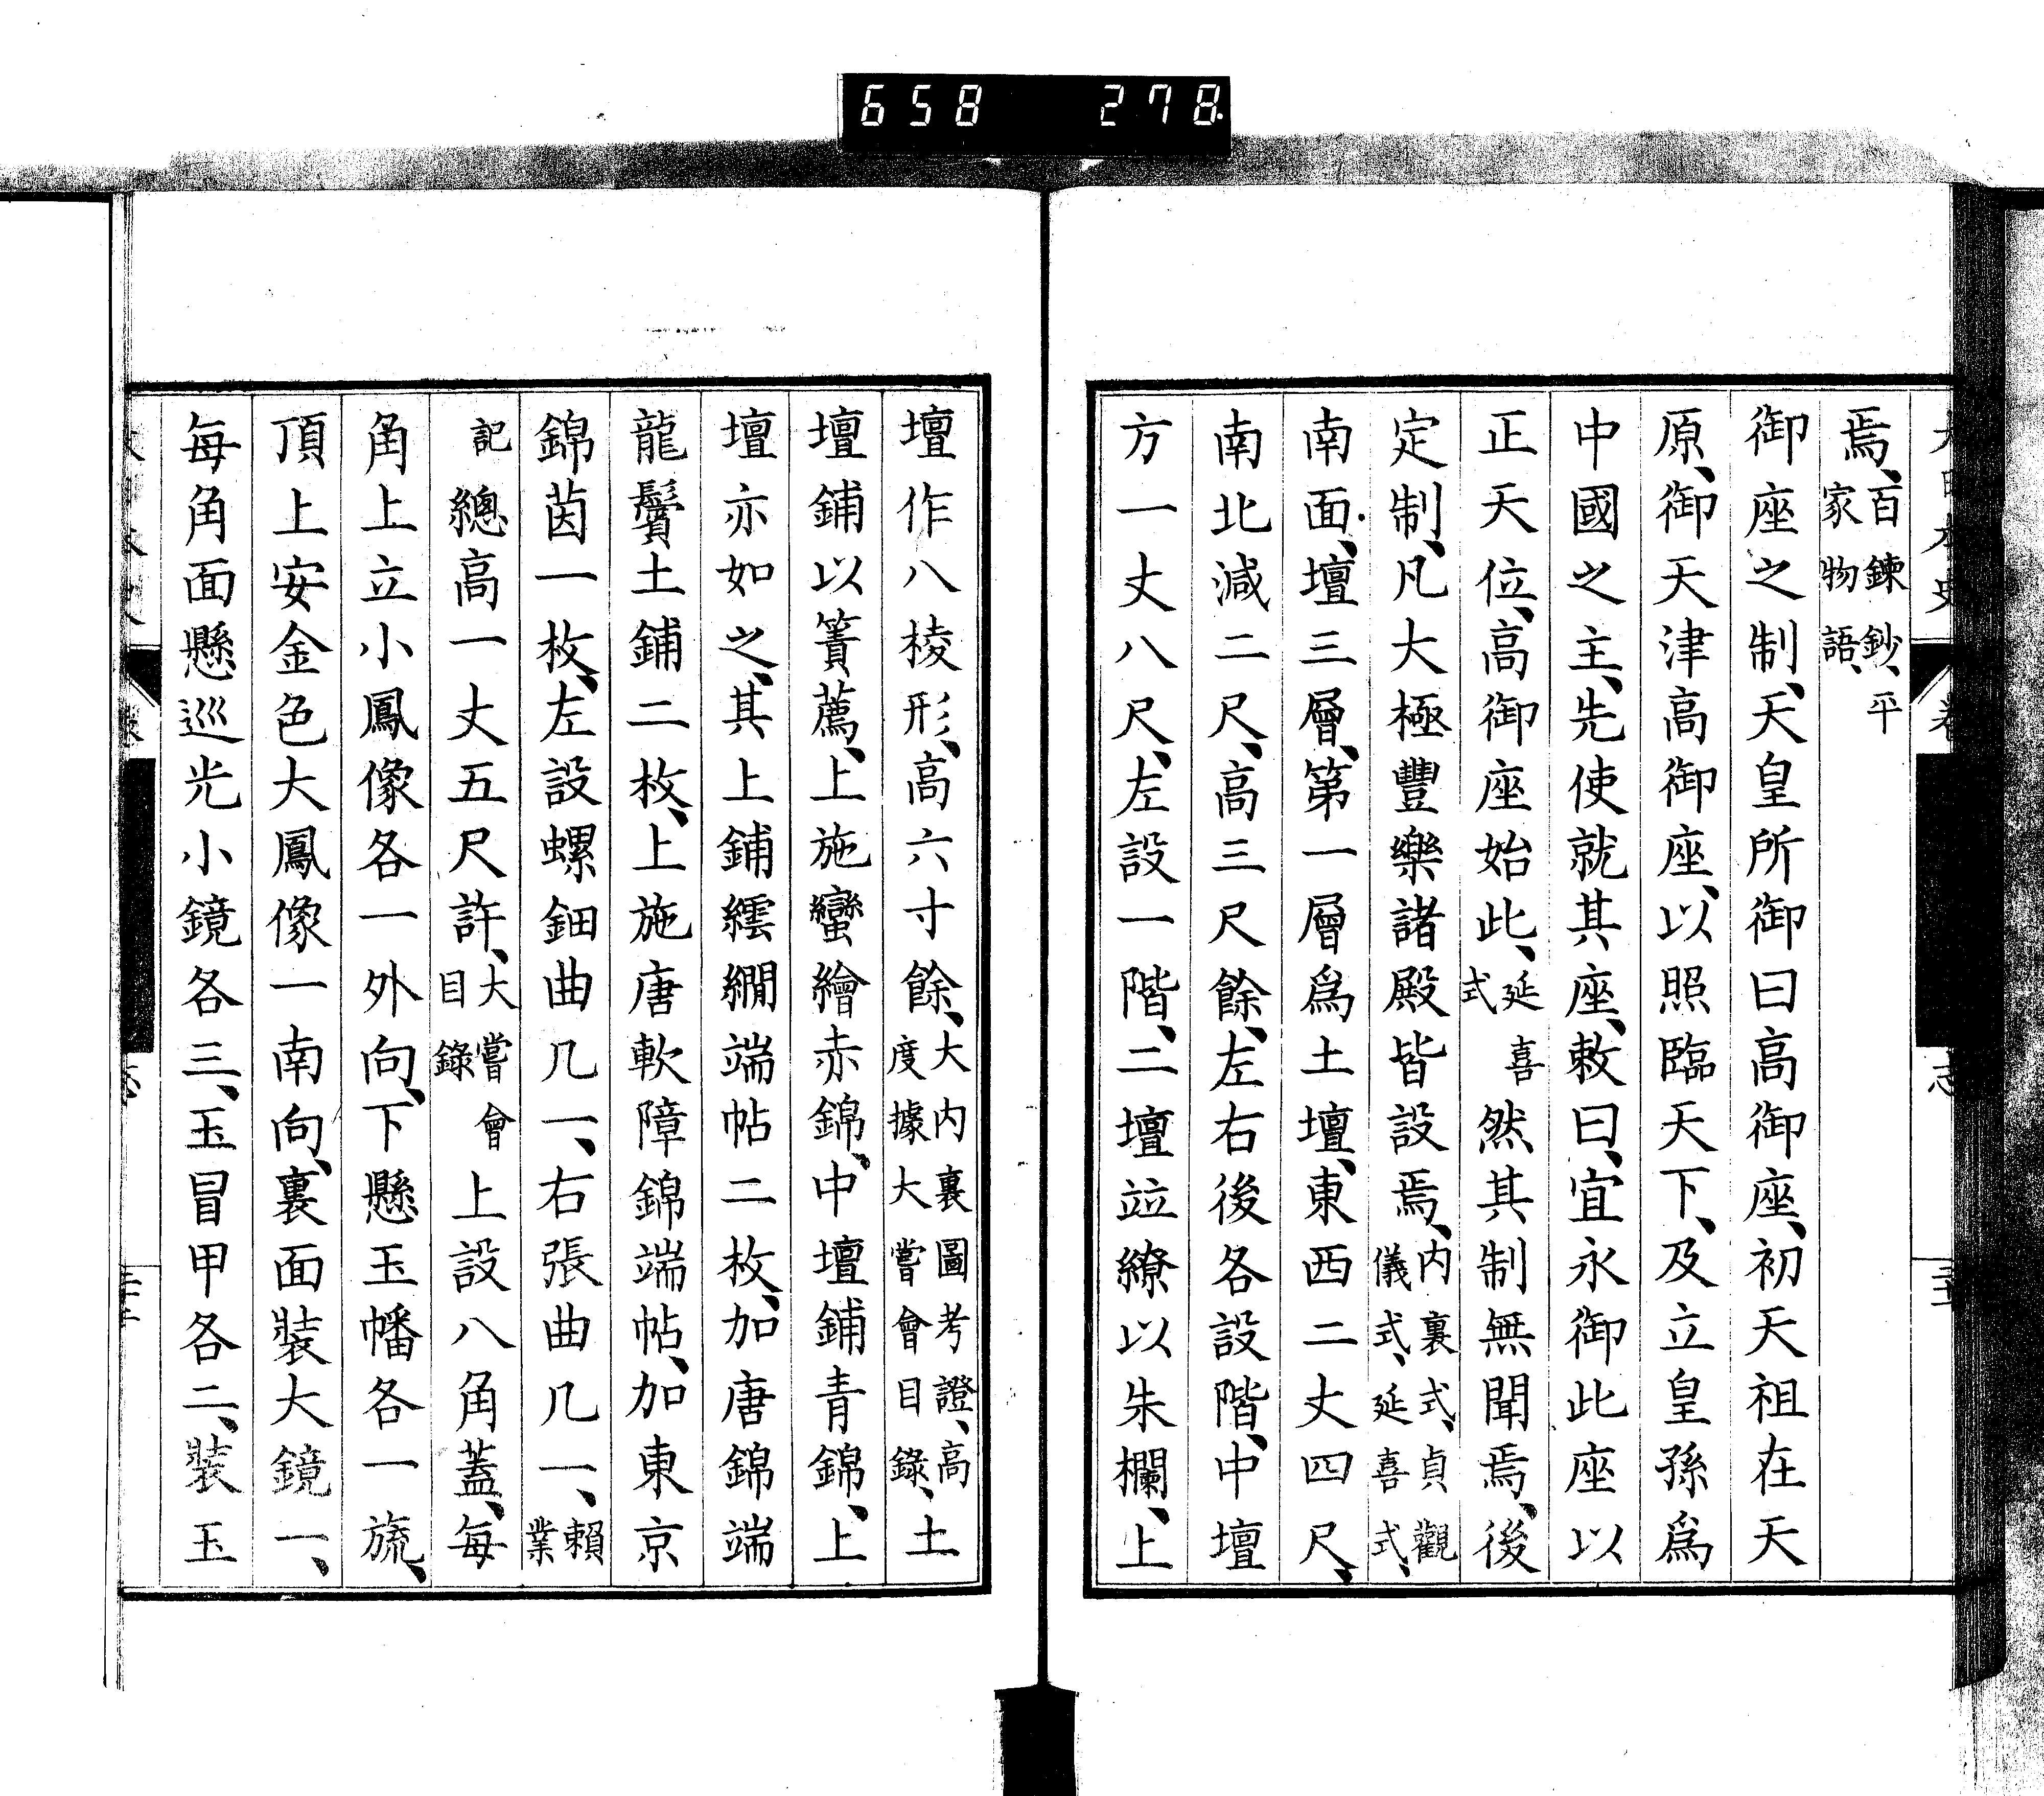 658 278
焉、百鍊鈔、平家物語、
御座之制、天皇所御曰高御座、初天祖在天
原、御天津高御座、以照臨天下、及立皇孫爲
中國之主、先使就其座、敕曰、宜永御此座以
正天位、高御座始此、延喜式然其制無聞焉、後
定制、凡大極豐樂諸殿皆設焉、内裏式、貞觀儀式、延喜式、
南面、壇三層、第一層爲土壇、東西二丈四尺、
南北減二尺、高三尺餘、左右後各設階、中壇
方一丈八尺、左設一階、二壇竝繚以朱欄、上
壇作八棱形、高六寸餘、大内裏圖考證、高度據大嘗會目錄、土
壇鋪以簀薦、上施蠻繪赤錦、中壇鋪青錦、上
壇亦如之、其上鋪繧繝端帖二枚、加唐錦端
龍鬢土鋪二枚、上施唐軟障錦端帖、加東京
錦茵一枚、左設螺鈿曲几一、右張曲几一、賴業
記總高一丈五尺許、大嘗會目錄上設八角蓋、每
角上立小鳳像各一外向、下懸玉幡各一旒、
頂上安金色大鳳像一南向、裏面裝大鏡一、
每角面懸巡光小鏡各三、玉冒甲各二、裝玉